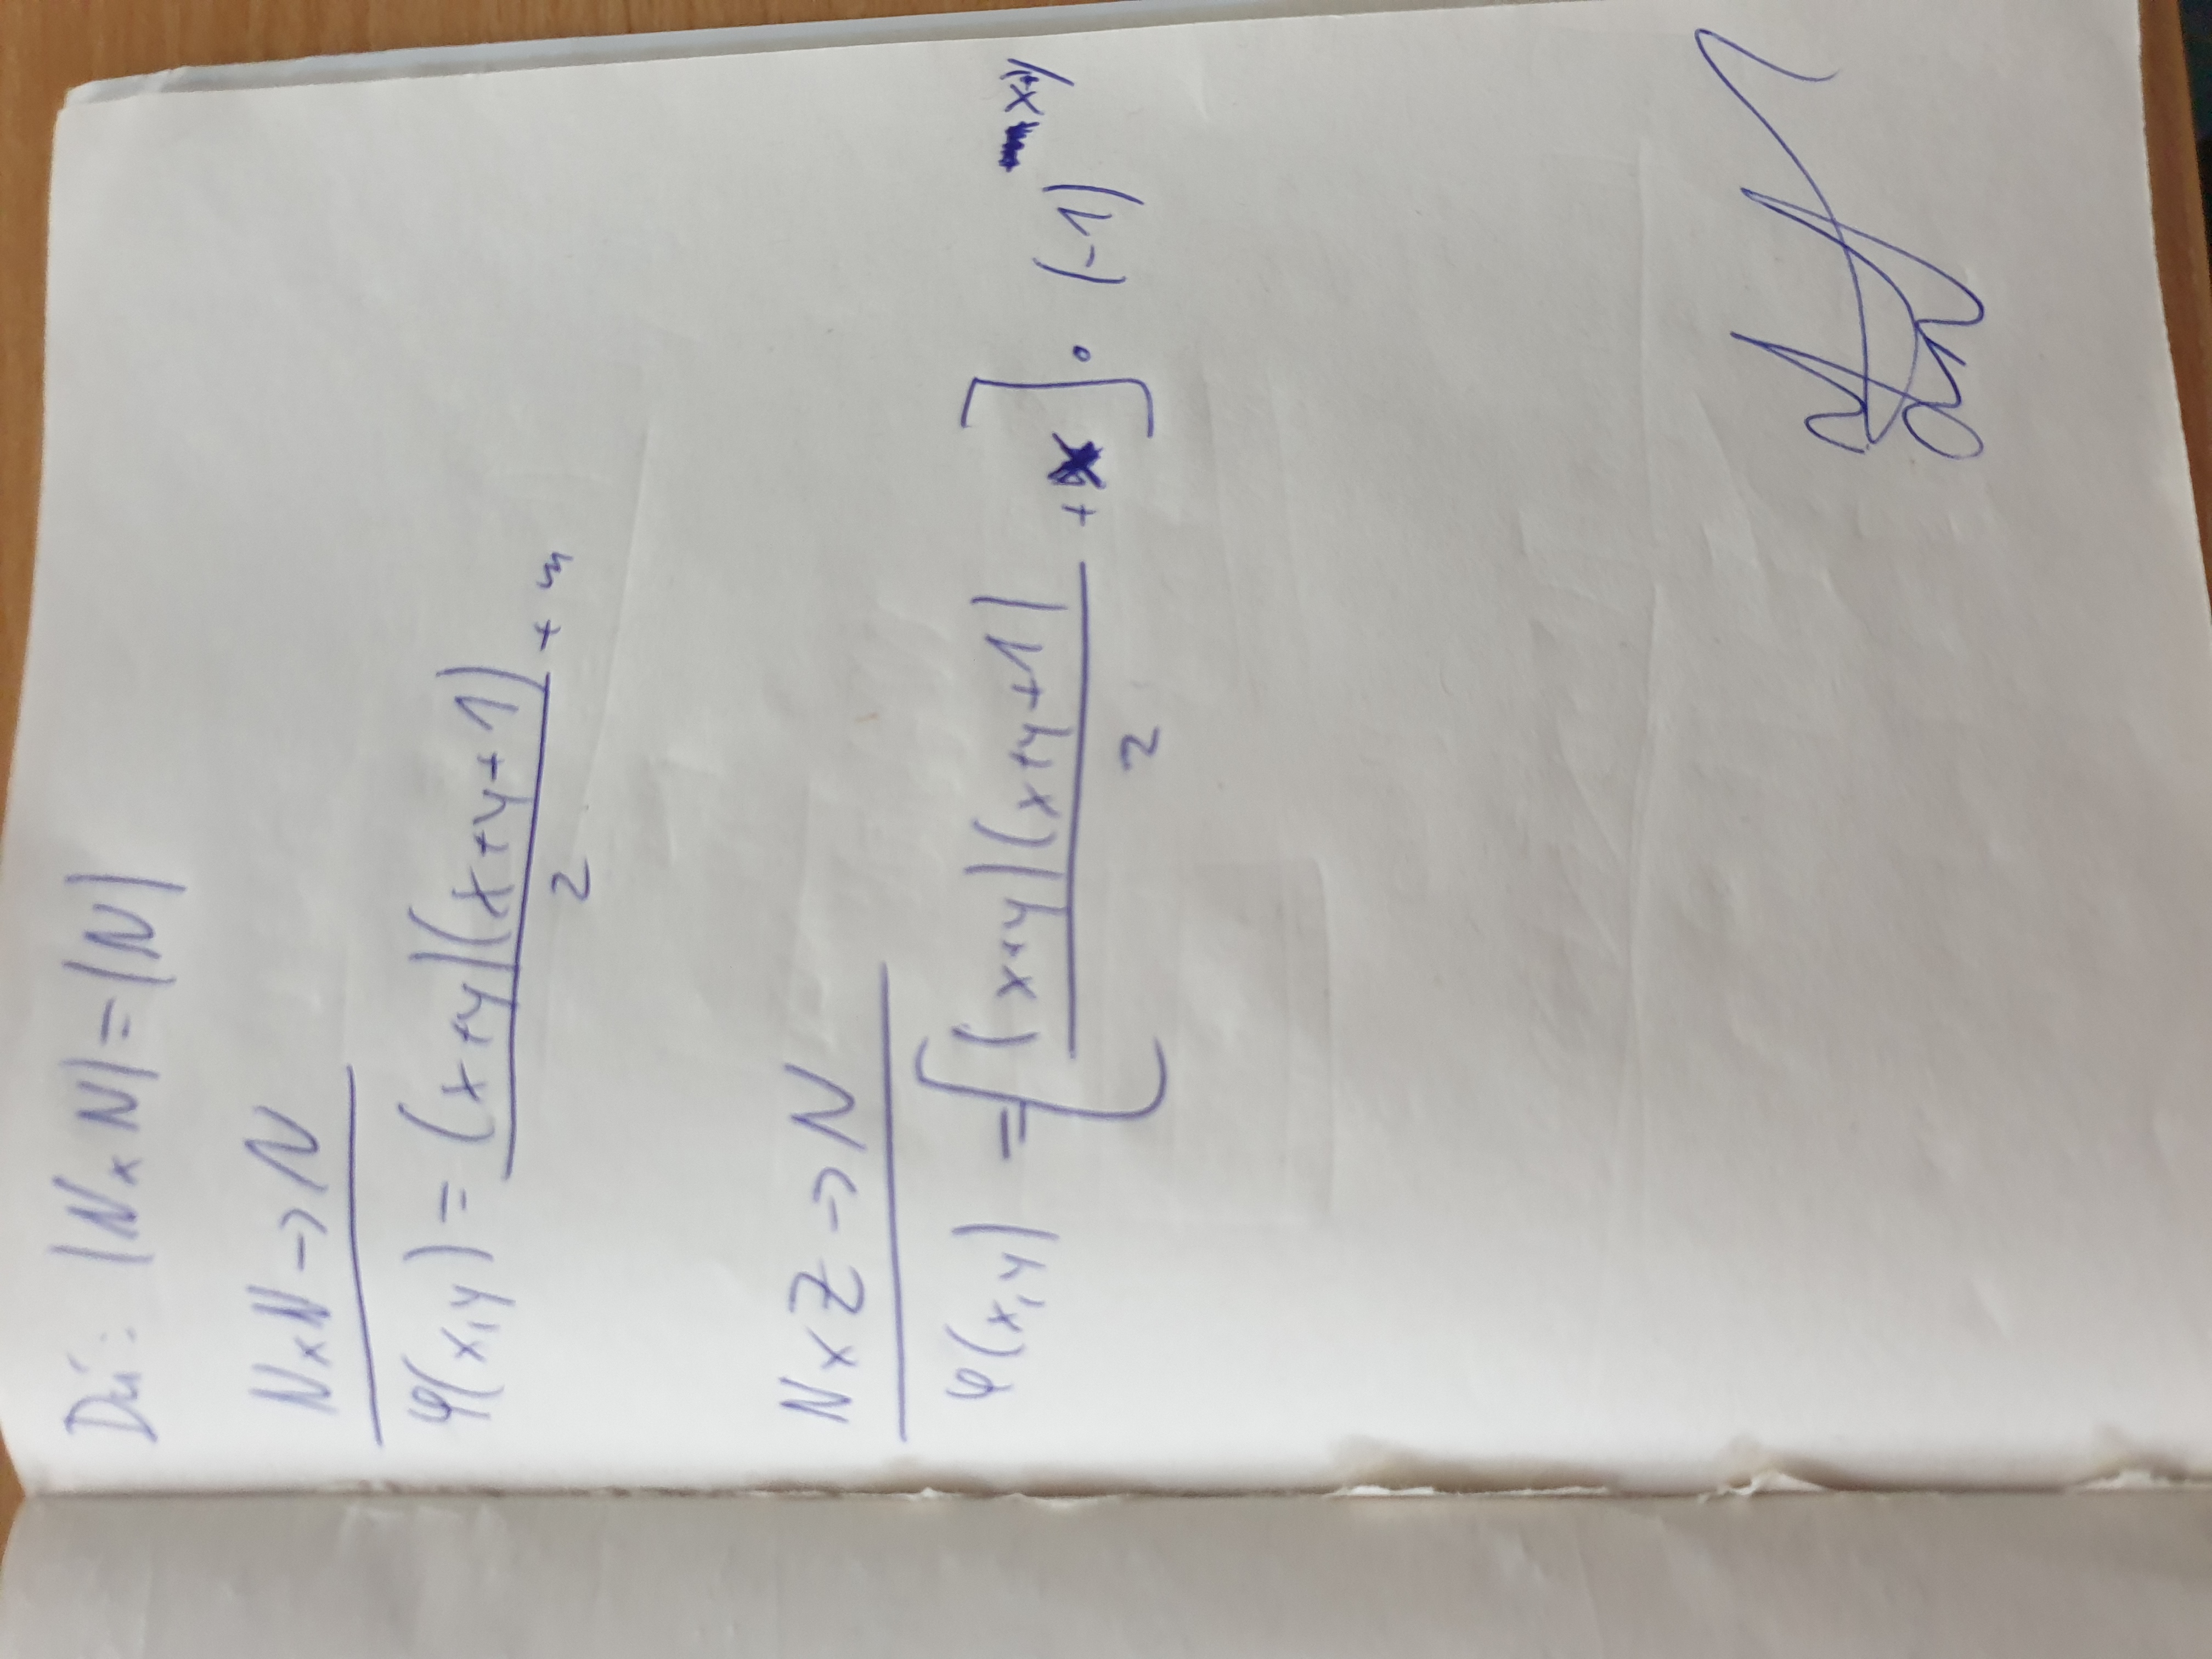 Dú: |N×N|=|N|
N×N → N
φ(x,y) = (x+y)(x+y+1)/2 + m
N×Z → N
φ(x,y) = [(x+y)(x+y+1)/2 + x] · (-1)^x+y